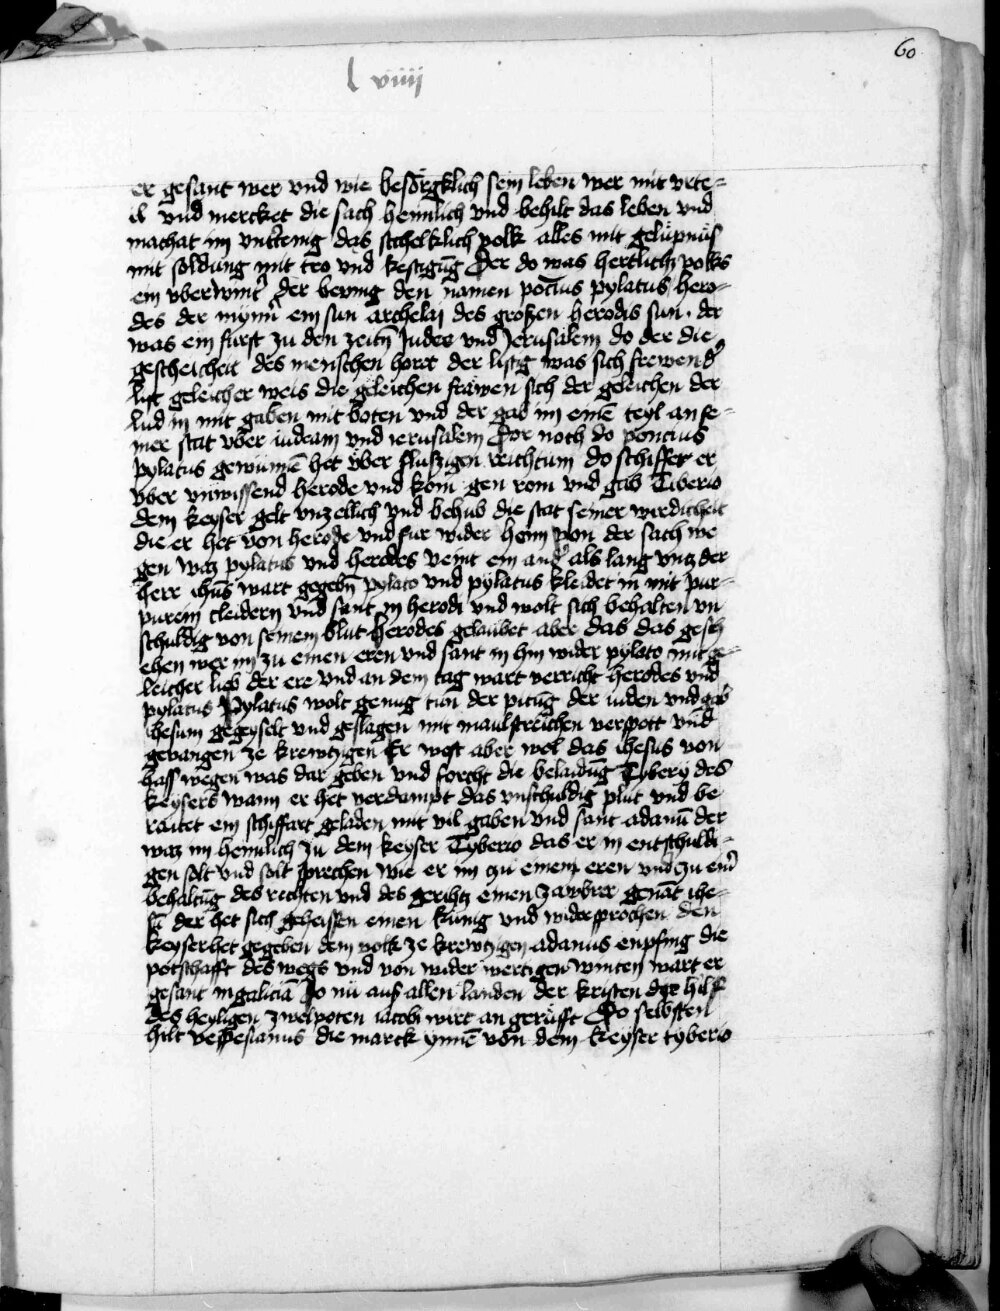 60
l viiij
er gesant wer vnd wie besörgklich sein leben wer mit vrte=
il vnd mercket die sach heimlich vnd behilt das leben vnd
machat im vnterenig das scthelklich volk alles mit gelüpnüs
mit soldung mit tro vnd kestigūg Der do was hertlichs volks
ein vberwint der beving den namen pociūs pylatus hero=
des der mynn ein sun archelaj des großen herodis sun. der
was ein fürst zu den zeitn Judee vnd Jerusalem do der die
gescheicheit des menschen hort der listig was sich frewend
list geleicher weis die geleichen fräwen sich der geleichen der
lud in mit gaben mit boten vnd der gab im einē teyl an se=
iner stat vber iudeam vnd ierusalem Dor noch do poncius
pylatus gewunnē het vber fluszigen reichtum do schiffet er
vber vnwissend herode vnd kom gen rom vnd gab Tiberio
dem keyser gelt vnzellich vnd behub die stat seiner wirdicheit
die er het von herode vnd fur wider heim von der sach we
gen waz pylatus vnd herodes veint ein and als lang vntz der
herr ihūs wart gegebn pylato vnd pylatus kleidet in mit pur=
purein cleidern vnd sant in herodi vnd wolt sich behalten vn
schuldig von seinem blut herodes gelaubet aber das das gesch
ehen wer im zu einen eren vnd sant in hin wider pylato mit ge=
leicher lieb der ere vnd an dem tag wart verricht herodes vnd
pylatus Pylatus wolt genug tun der pitūg der iuden vnd gab
ihesum gegeyselt vnd geslagen mit maulstreichen verspott vnd
gevangen ze krewtzigen Er west aber wol das ihesus von
hass wegen was dar geben vnd forcht die belaidūg Tybery des
keysers wann er het verdampt das vnschuldig plut vnd be
raitet ein schiffart geladen mit vil gaben vnd sant adanū der
waz im heimlich zu dem keyser Tyberio das er in entschuldi=
gen solt vnd solt sprechen wie er im zu einem eren vnd zu ein
behaltūg des rechten vnd des gerihtz einen zawbrer genāt ihe=
sū der het sich geheissen einen kunig vnd widersprochen den
keyser het gegeben dem volk ze krewtzigen adanus enpfing die
potschafft des wegs vnd von wider wertigen winten wart er
gesant in galiciā Jo nu aus allen landen der kristen der hilf
des heyligen zwelpoten iacobi wirt an gerüfft Do selbsten
hilt vespesianus die marck ynnē von dem keyser tyberio